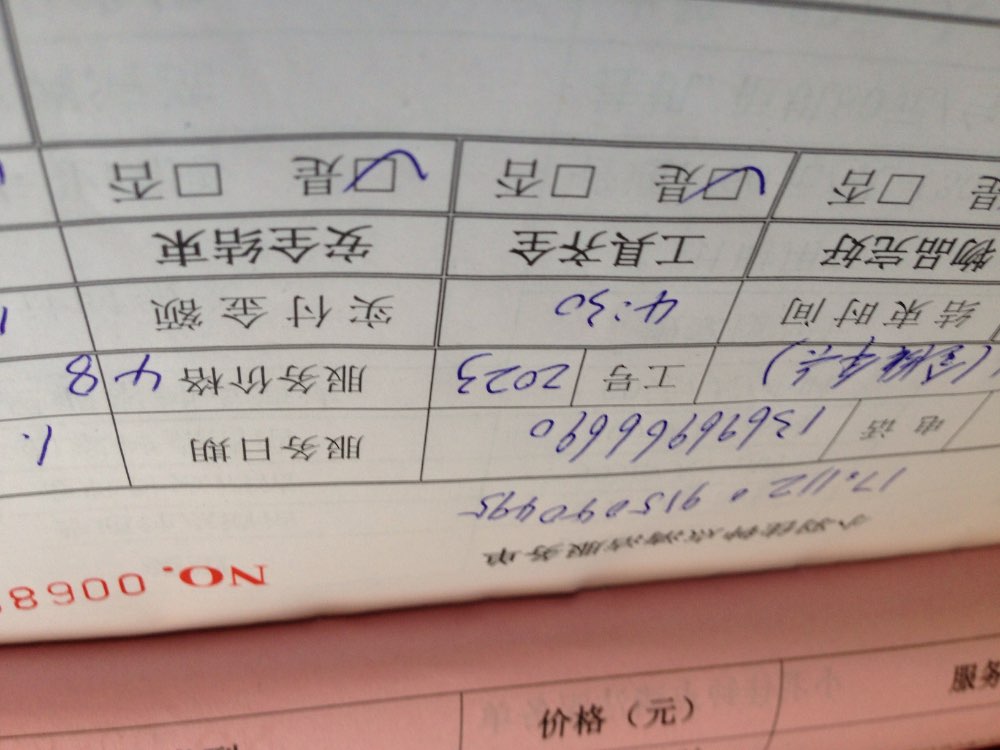 钟点清洁服务单 NO. 0068
电话 13696966690 服务日期 1.
工号 2023 服务价格 48
结束时间 4:30 实付金额
物品完好 工具齐全 安全结束
是 □否 ☑是 □否 ☑是 □否
价格（元） 服务